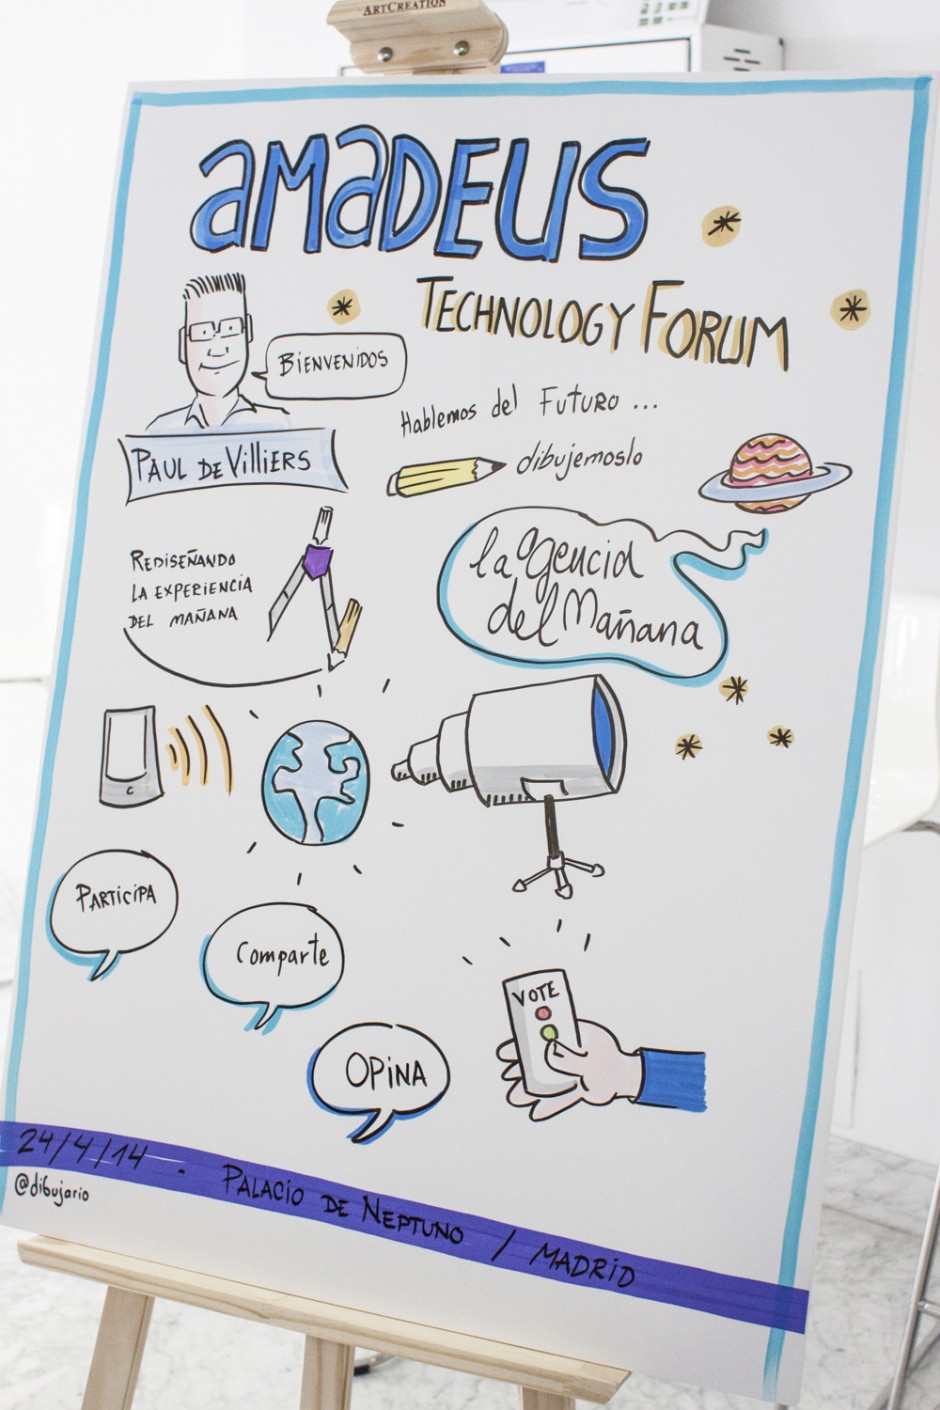 ARTCREATION
aMaDEUS
TECHNOLOGY FORUM
BIENVENIDOS
PAUL DE VILLIERS
Hablemos del FUTURO ...
dibujemoslo
REDISEÑANDO
LA EXPERIENCIA
DEL MAÑANA
la agencia
del Mañana
PARTICIPA
Comparte
OPINA
VOTE
24/4/14 - PALACIO DE NEPTUNO / MADRID
@dibujario